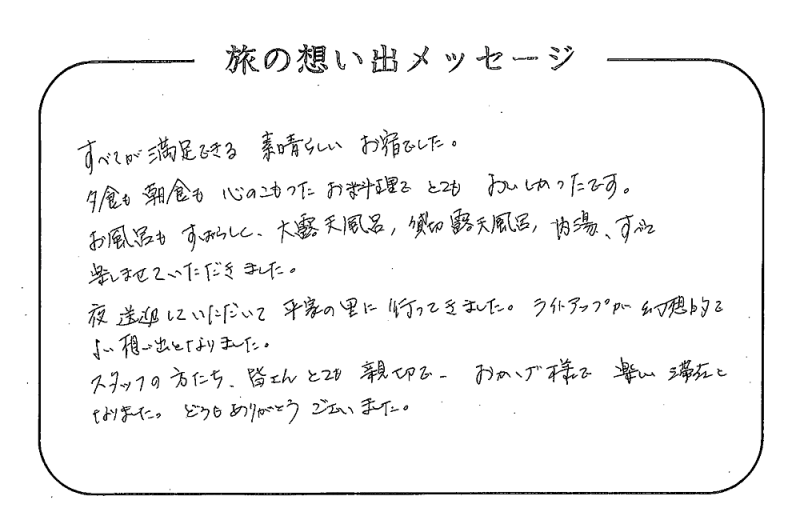 旅の想い出メッセージ
すべてが満足できる 素晴らしい お宿でした。
夕食も 朝食も 心のこもった お料理で とても おいしかったです。
お風呂も すばらしく、大露天風呂, 貸切露天風呂, 内湯、すべて
楽しませていただきました。
夜 送迎していただいて 平家の里に 行ってきました。ライトアップが 幻想的で
よい想い出となりました。
スタッフの方たち、皆さん とても 親切で、おかげ様で 楽しい 滞在と
なりました。どうも ありがとう ございました。